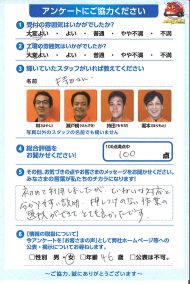 アンケートにご協力ください
1 受付の雰囲気はいかがでしたか?
大変よい ・ よい ・ 普通 ・ やや不満 ・ 不満
2 工場の雰囲気はいかがでしたか?
大変よい ・ よい ・ 普通 ・ やや不満 ・ 不満
3 輝いていたスタッフがいれば教えてください
名前
写真以外のスタッフの名前でも構いません
4 総合評価を
お聞かせください!
100点満点中
100 点
5 その他、お気づきの点やお客さまのメッセージをお聞かせください。
みなさまの言葉が私たちのチカラになります!
初めて利用しましたが、ていねいな対応と
分かりやすい説明、押しつけのない作業の
選択ができてとても良かったです。
6 【情報の取扱について】
今アンケートを「お客さまの声」として弊社ホームページ等への
公表・掲示についてお尋ねします。
□性別 男・女 □年齢 46 歳 □公表は不可。
~ご協力、誠にありがとうございます~